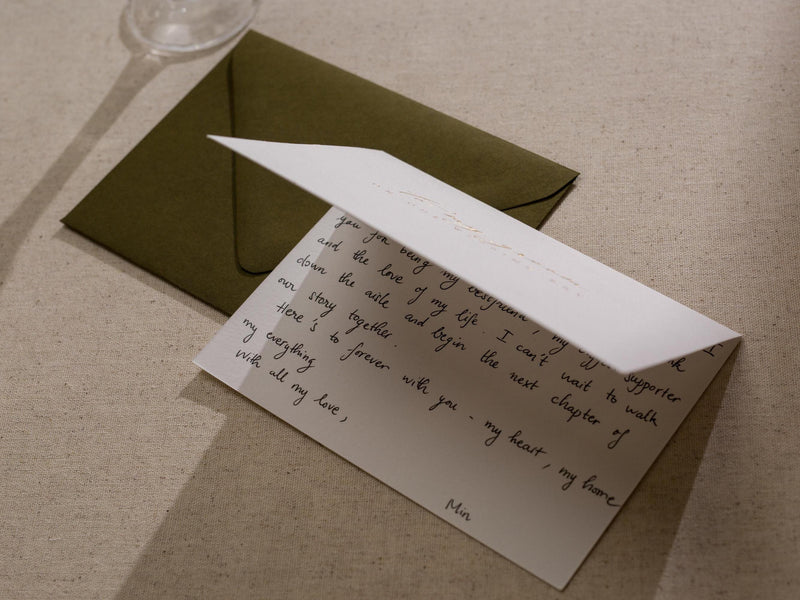 I
you for being my bestfriend, my supporter
and the love of my life. I can't wait to walk
down the aisle and begin the next chapter of
our story together.
Here's to forever with you - my heart, my home
my everything
With all my love,
Min